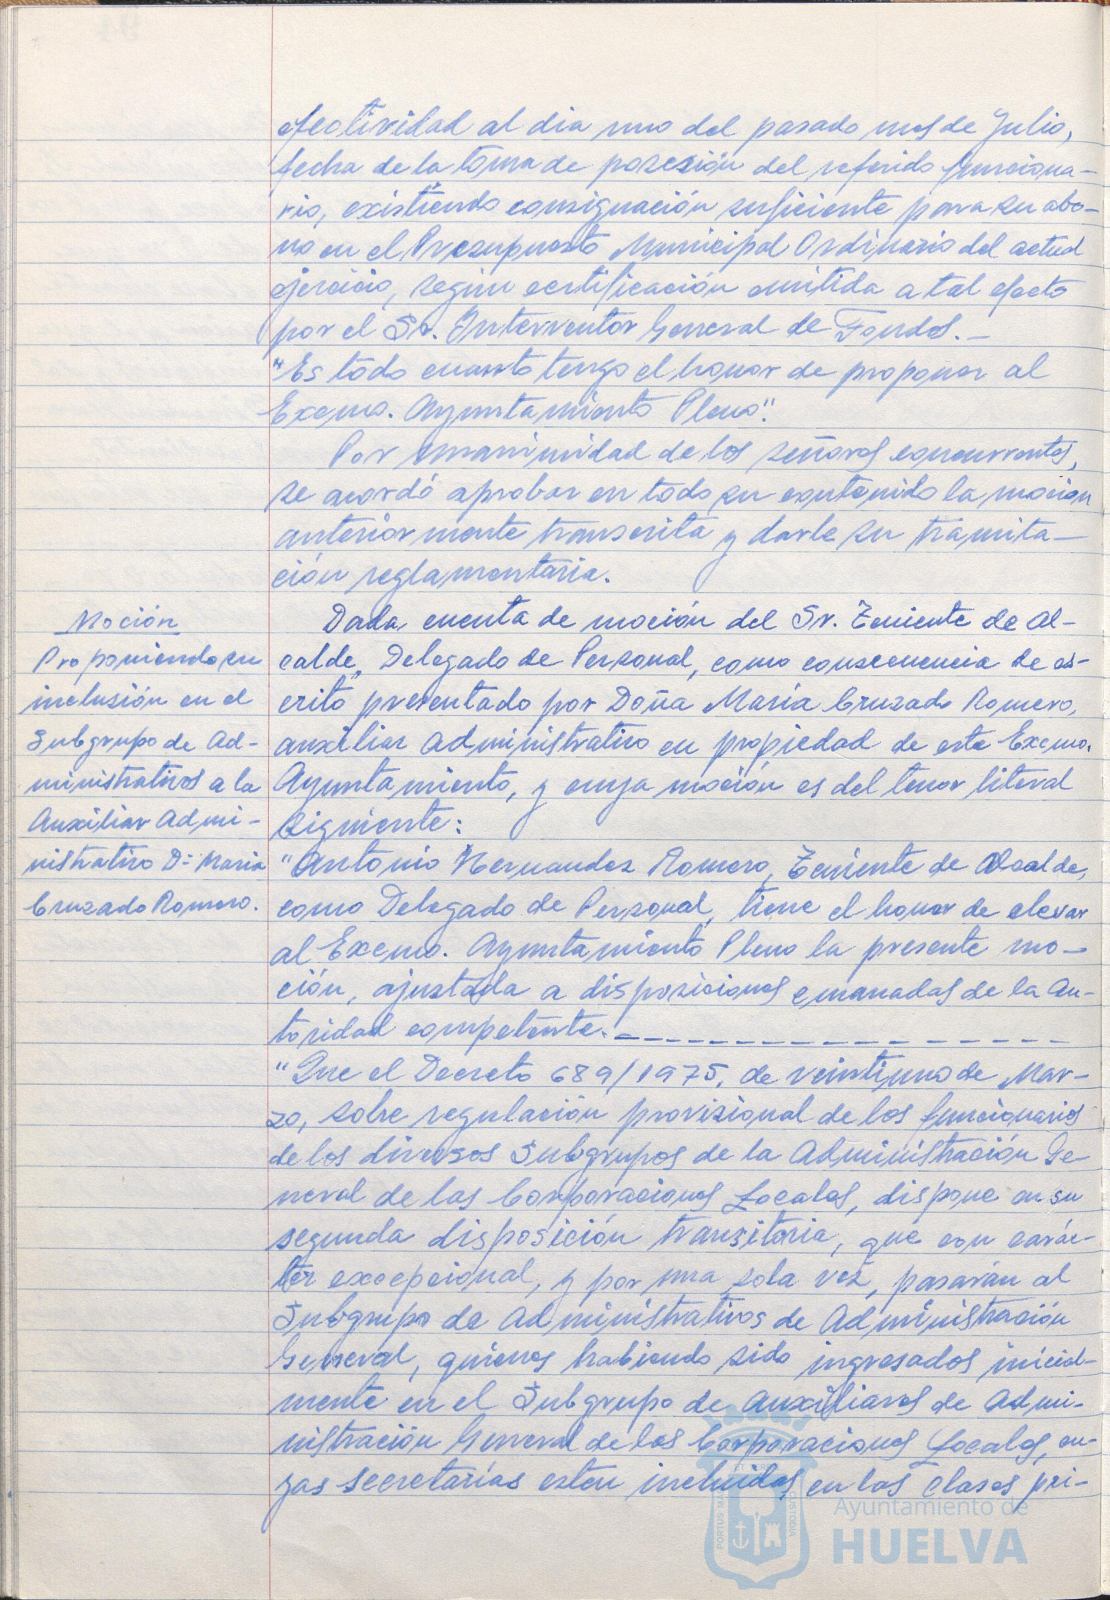 efectividad al dia uno del pasado mes de Julio,
fecha de la toma de posesión del referido funciona-
rio, existiendo consignación suficiente para su abo-
no en el Presupuesto Municipal Ordinario del actual
ejercicio, según certificación emitida a tal efecto
por el Sr. Interventor General de Fondos.-
"Es todo cuanto tengo el honor de proponer al
Excmo. Ayuntamiento Pleno".
Por unanimidad de los señores concurrentes,
se acordó aprobar en todo su contenido la moción
anteriormente transcrita y darle su tramita-
ción reglamentaria.
Moción
Proponiendo su
inclusión en el
Subgrupo de Ad-
ministrativos a la
Auxiliar Admi-
nistrativo Dª Maria
Cruzado Romero.
Dada cuenta de moción del Sr. Teniente de Al-
calde, Delegado de Personal, como consecuencia de es-
crito presentado por Doña María Cruzado Romero,
auxiliar administrativo en propiedad de este Excmo.
Ayuntamiento, y cuya moción es del tenor literal
siguiente:
"Antonio Hernandez Romero, Teniente de Alcalde,
como Delegado de Personal, tiene el honor de elevar
al Excmo. Ayuntamiento Pleno la presente mo-
ción, ajustada a disposiciones emanadas de la au-
toridad competente.- - - - - - - - - - - - - - - -
"Que el Decreto 689/1975, de veintiuno de Mar-
zo, sobre regulación provisional de los funcionarios
de los diversos Subgrupos de la Administración Ge-
neral de las Corporaciones Locales, dispone en su
segunda disposición transitoria, que con carác-
ter excepcional, y por una sola vez, pasarán al
Subgrupo de Administrativos de Administración
General, quienes habiendo sido ingresados inicial-
mente en el Subgrupo de Auxiliares de Admi-
nistración General de las Corporaciones Locales, cu-
yas secretarías esten incluidas en las clases pri-
PORTUS MARIS
CUSTODIA
Ayuntamiento de
HUELVA